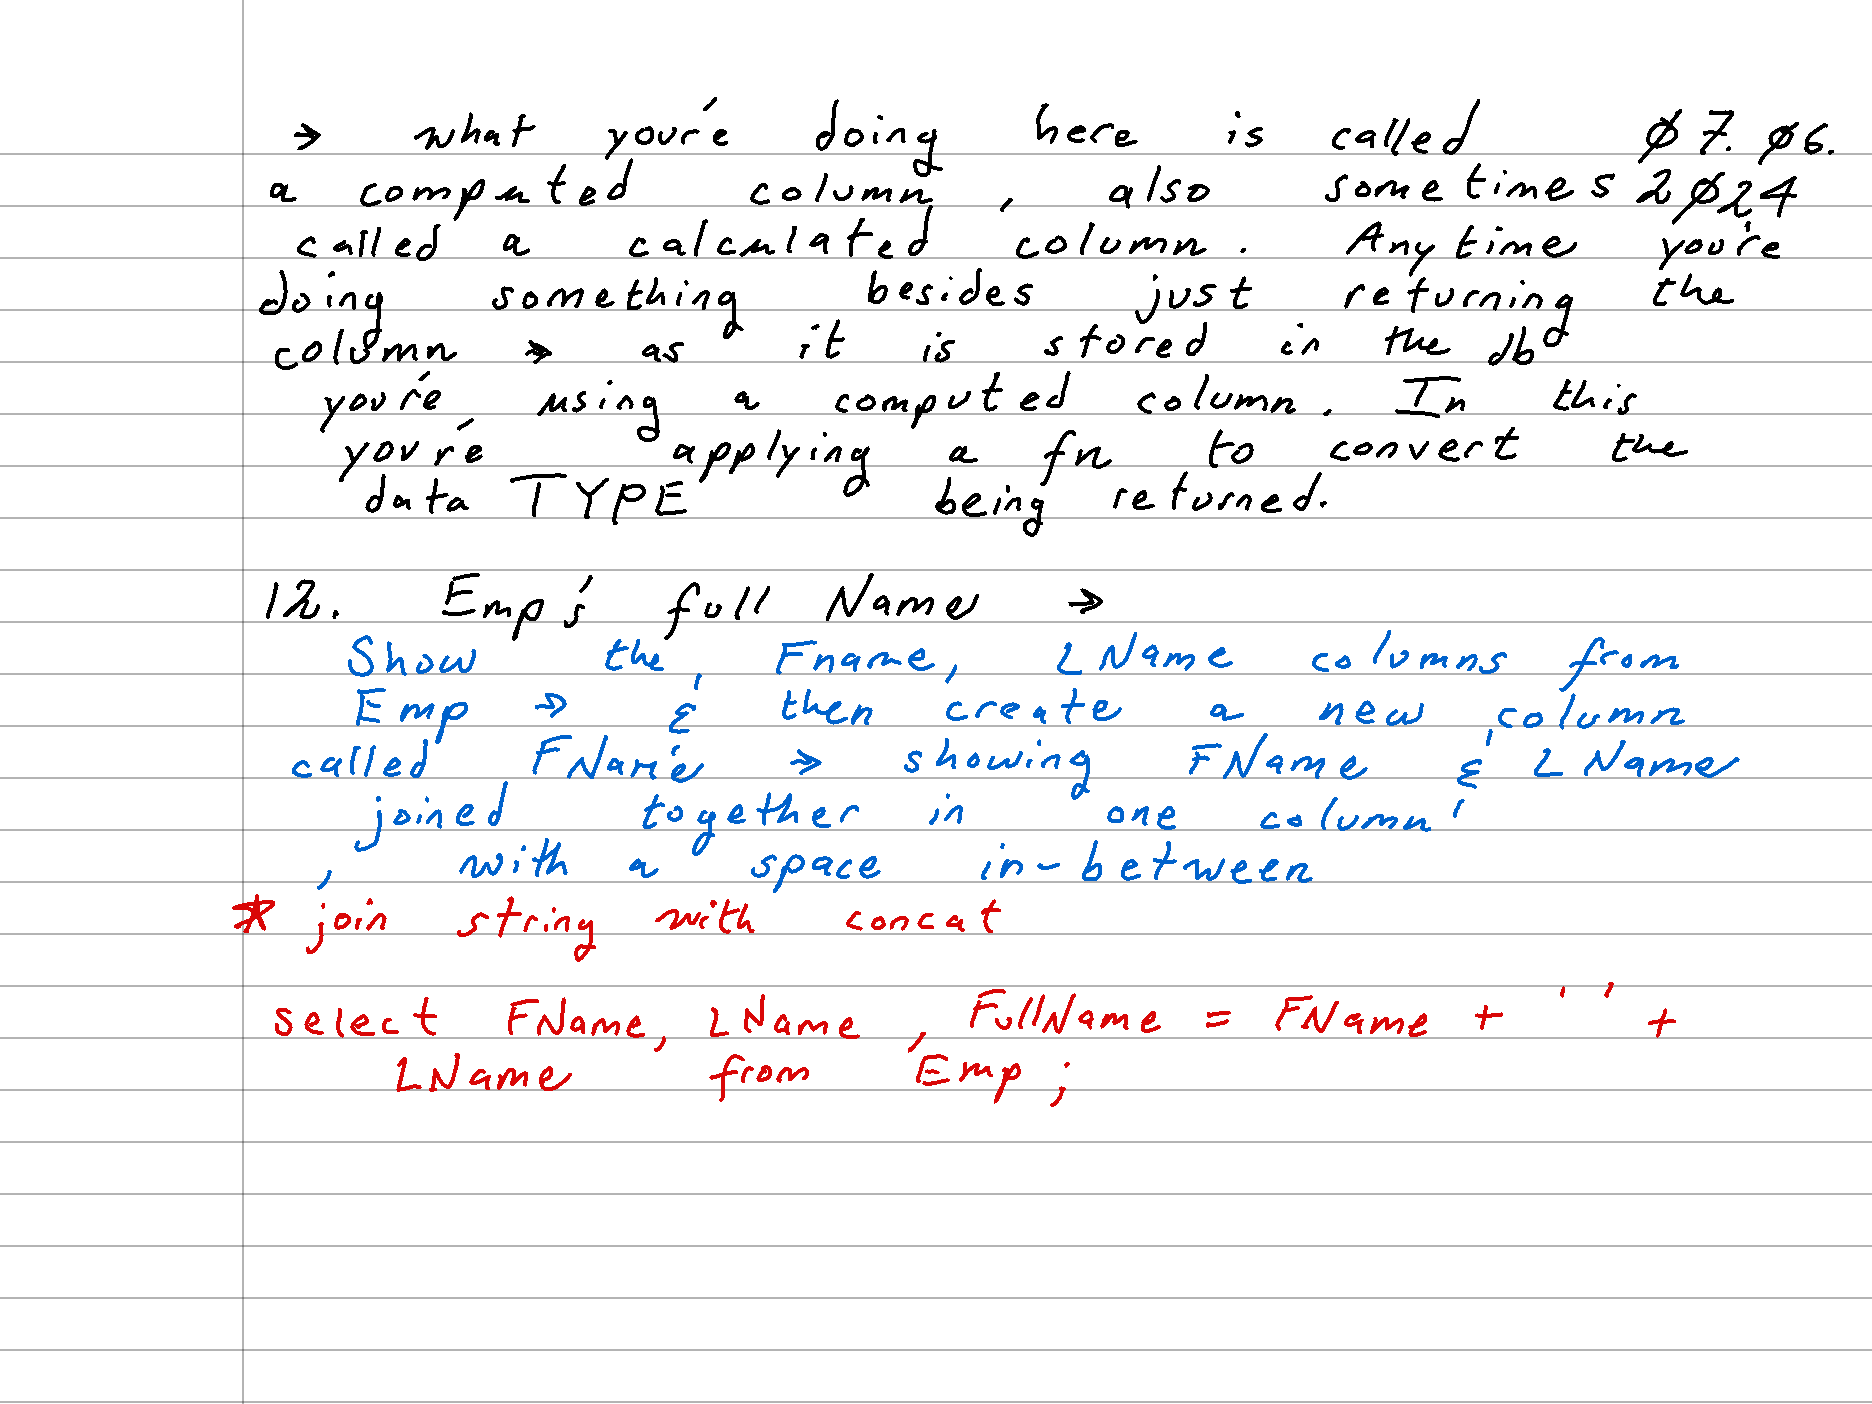 → what you're doing here is called ø7.ø6.
a computed column, also sometimes 2ø24
called a calculated column. Any time you're
doing something besides just returning the
column → as it is stored in the db
you're using a computed column. In this
you're applying a fn to convert the
data TYPE being returned.
12. Emp's full Name →
Show the Fname, LName columns from
Emp → & then create a new column
called FName → showing FName & LName
joined together in one column
, with a space in-between
* join string with concat
select FName, LName, FullName = FName + ' ' +
LName from Emp;